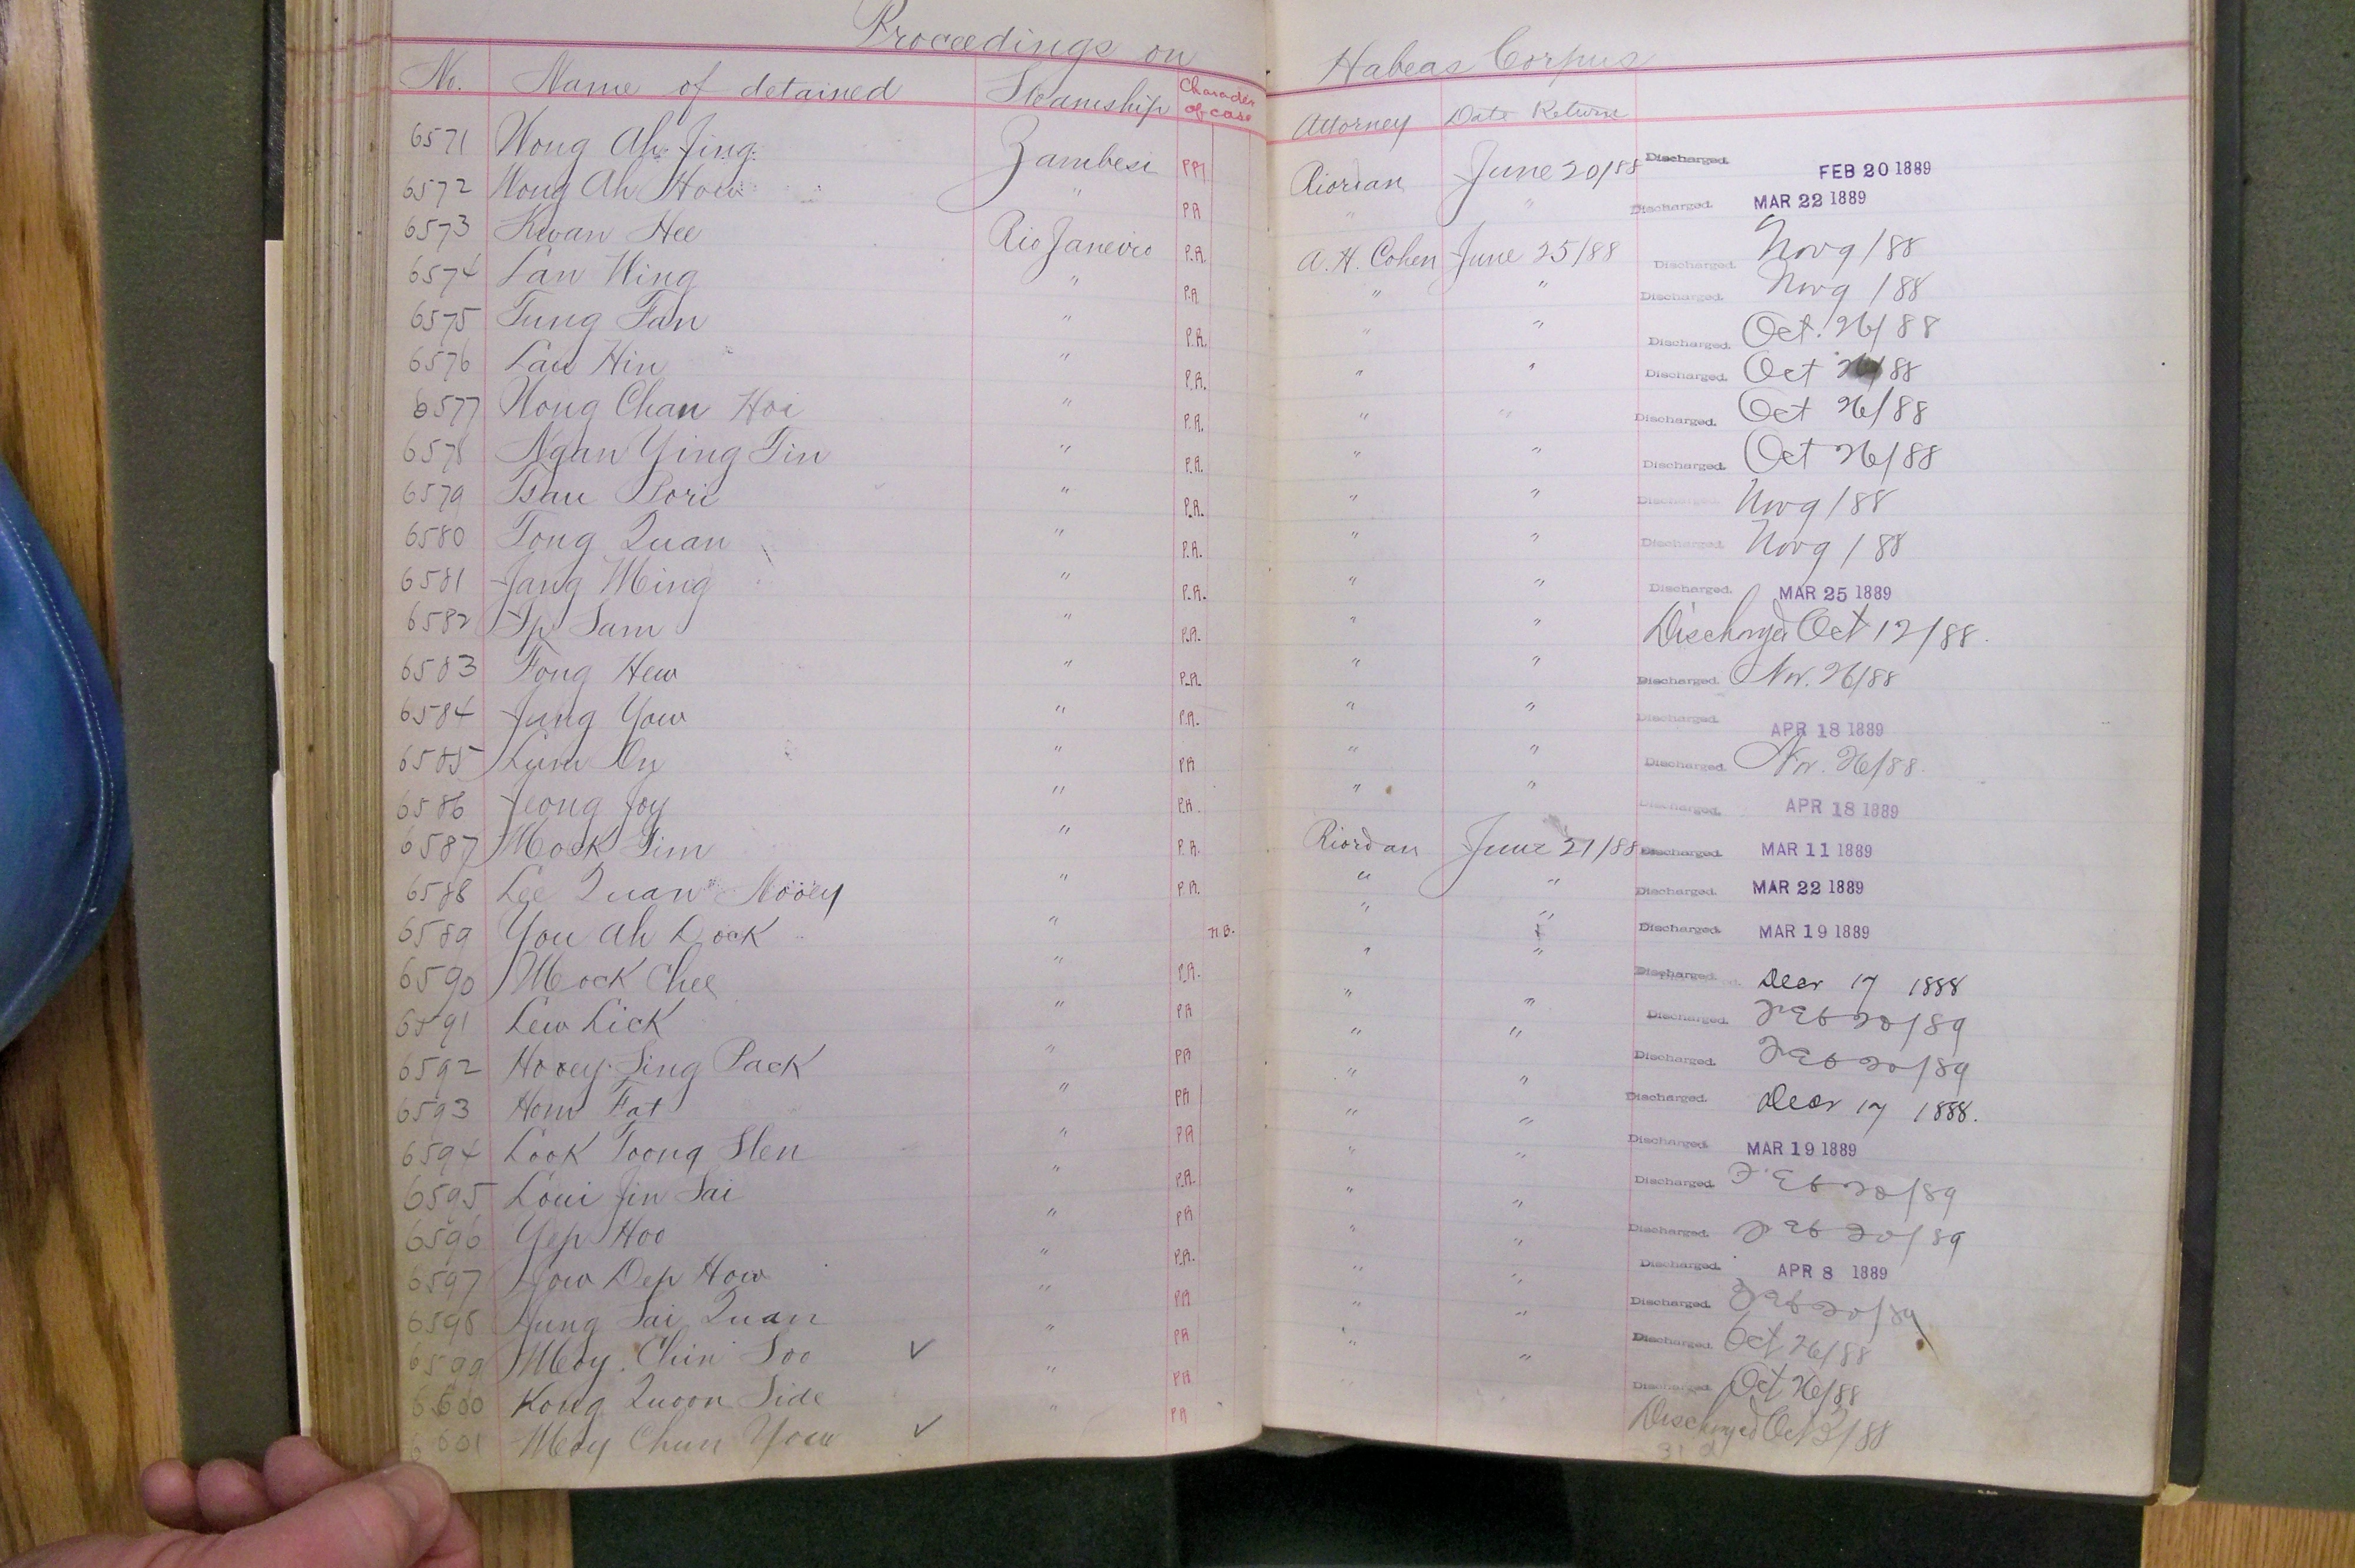 Proceedings on Habeas Corpus
No. Name of detained Steamship Character of case Attorney Date Return
6571 Wong Ah Jing Zambesi PA Riordan June 20/88 Discharged. FEB 20 1889
6572 Wong Ah How " PA " " Discharged. MAR 22 1889
6573 Kwan Hee Rio Janeiro P.A. A. H. Cohen June 25/88 Discharged. Nov 9/88
6574 Lan Wing " P.A. " " Discharged. Nov 9/88
6575 Tung Fan " P.A. " " Discharged. Oct. 26/88
6576 Lau Hin " P.A. " " Discharged. Oct 26/88
6577 Wong Chan Hoi " P.A. " " Discharged. Oct 26/88
6578 Ngan Ying Tin " P.A. " " Discharged. Oct 26/88
6579 Tsau " P.A. " " Discharged. Nov 9/88
6580 Tong Quan " P.A. " " Discharged. Nov 9/88
6581 Jang Ming " P.A. " " Discharged. MAR 25 1889
6582 Ip Sam " P.A. " " Discharged Oct 12/88.
6583 Fong Hew " P.A. " " Discharged. Nov. 26/88
6584 Jung Yow " P.A. " " Discharged. APR 18 1889
6585 Lum On " PA " " Discharged. Nov. 26/88.
6586 Jeong Joy " P.A. " " Discharged. APR 18 1889
6587 Mock Tim " P.A. Riordan June 27/88 Discharged. MAR 11 1889
6588 Lee Quan Nooey " P.A. " " Discharged. MAR 22 1889
6589 You Ah Dock " H B. " " Discharged. MAR 19 1889
6590 Mock Chee " P.A. " " Discharged. Decr 17 1888
6591 Lew Lick " PA " " Discharged. Feb 20/89
6592 Hooey Sing Pack " PA " " Discharged. Feb 20/89
6593 Hom Fat " PA " " Discharged. Decr 17 1888.
6594 Look Toong Slen " PA " " Discharged. MAR 19 1889
6595 Loui Jin Sai " P.A. " " Discharged. Feb 20/89
6596 Yep Hoo " PA " " Discharged. Feb 20/89
6597 Yow Dep How " P.A. " " Discharged. APR 8 1889
6598 Hung Sai Quan " PA " " Discharged. Feb 20/89
6599 Moy Chin Soo ✓ " PA " " Discharged. Oct 26/88
6600 Kong Quoon Side " PA " Discharged. Oct 26/88
6601 Moy Chun Yow ✓ " PA Discharged Oct /88